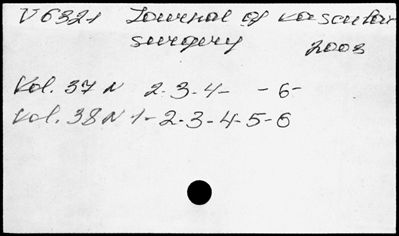 V6321 Journal of vascular
surgery 2003
Vol. 37 N 2-3-4- -6-
Vol. 38 N 1-2-3-4-5-6